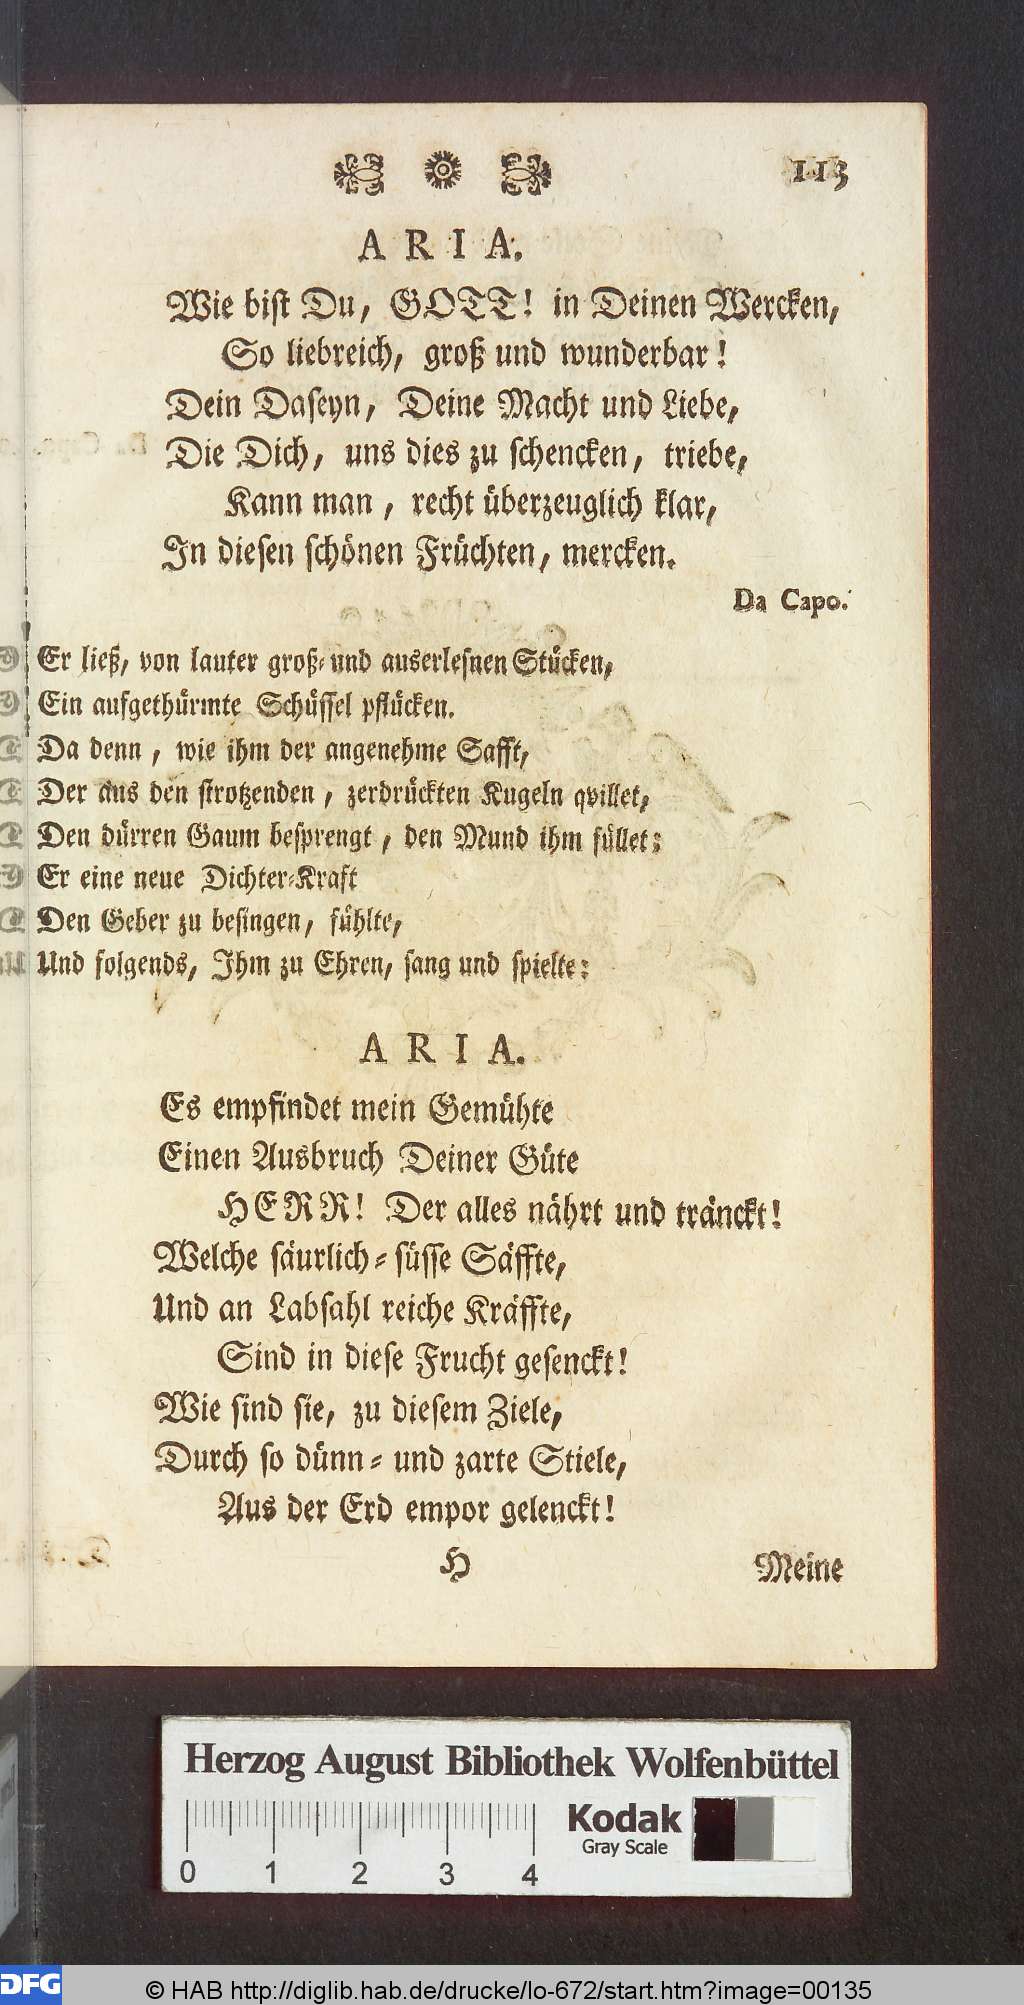 113
ARIA.
Wie bist Du, GOTT! in Deinen Wercken,
So liebreich, groß und wunderbar!
Dein Daseyn, Deine Macht und Liebe,
Die Dich, uns dies zu schencken, triebe,
Kann man, recht überzeuglich klar,
In diesen schönen Früchten, mercken.
Da Capo.
Er ließ, von lauter groß- und auserlesnen Stücken,
Ein aufgethürmte Schüssel pflücken.
Da denn, wie ihm der angenehme Safft,
Der aus den strotzenden, zerdrückten Kugeln qvillet,
Den dürren Gaum besprengt, den Mund ihm füllet:
Er eine neue Dichter-Kraft
Den Geber zu besingen, fühlte,
Und folgends, Ihm zu Ehren, sang und spielte:
ARIA.
Es empfindet mein Gemühte
Einen Ausbruch Deiner Güte
HERR! Der alles nährt und tränckt!
Welche säurlich-süsse Säffte,
Und an Labsahl reiche Kräffte,
Sind in diese Frucht gesenckt!
Wie sind sie, zu diesem Ziele,
Durch so dünn- und zarte Stiele,
Aus der Erd empor gelenckt!
H Meine
Herzog August Bibliothek Wolfenbüttel
Kodak
Gray Scale
0 1 2 3 4
DFG © HAB http://diglib.hab.de/drucke/lo-672/start.htm?image=00135